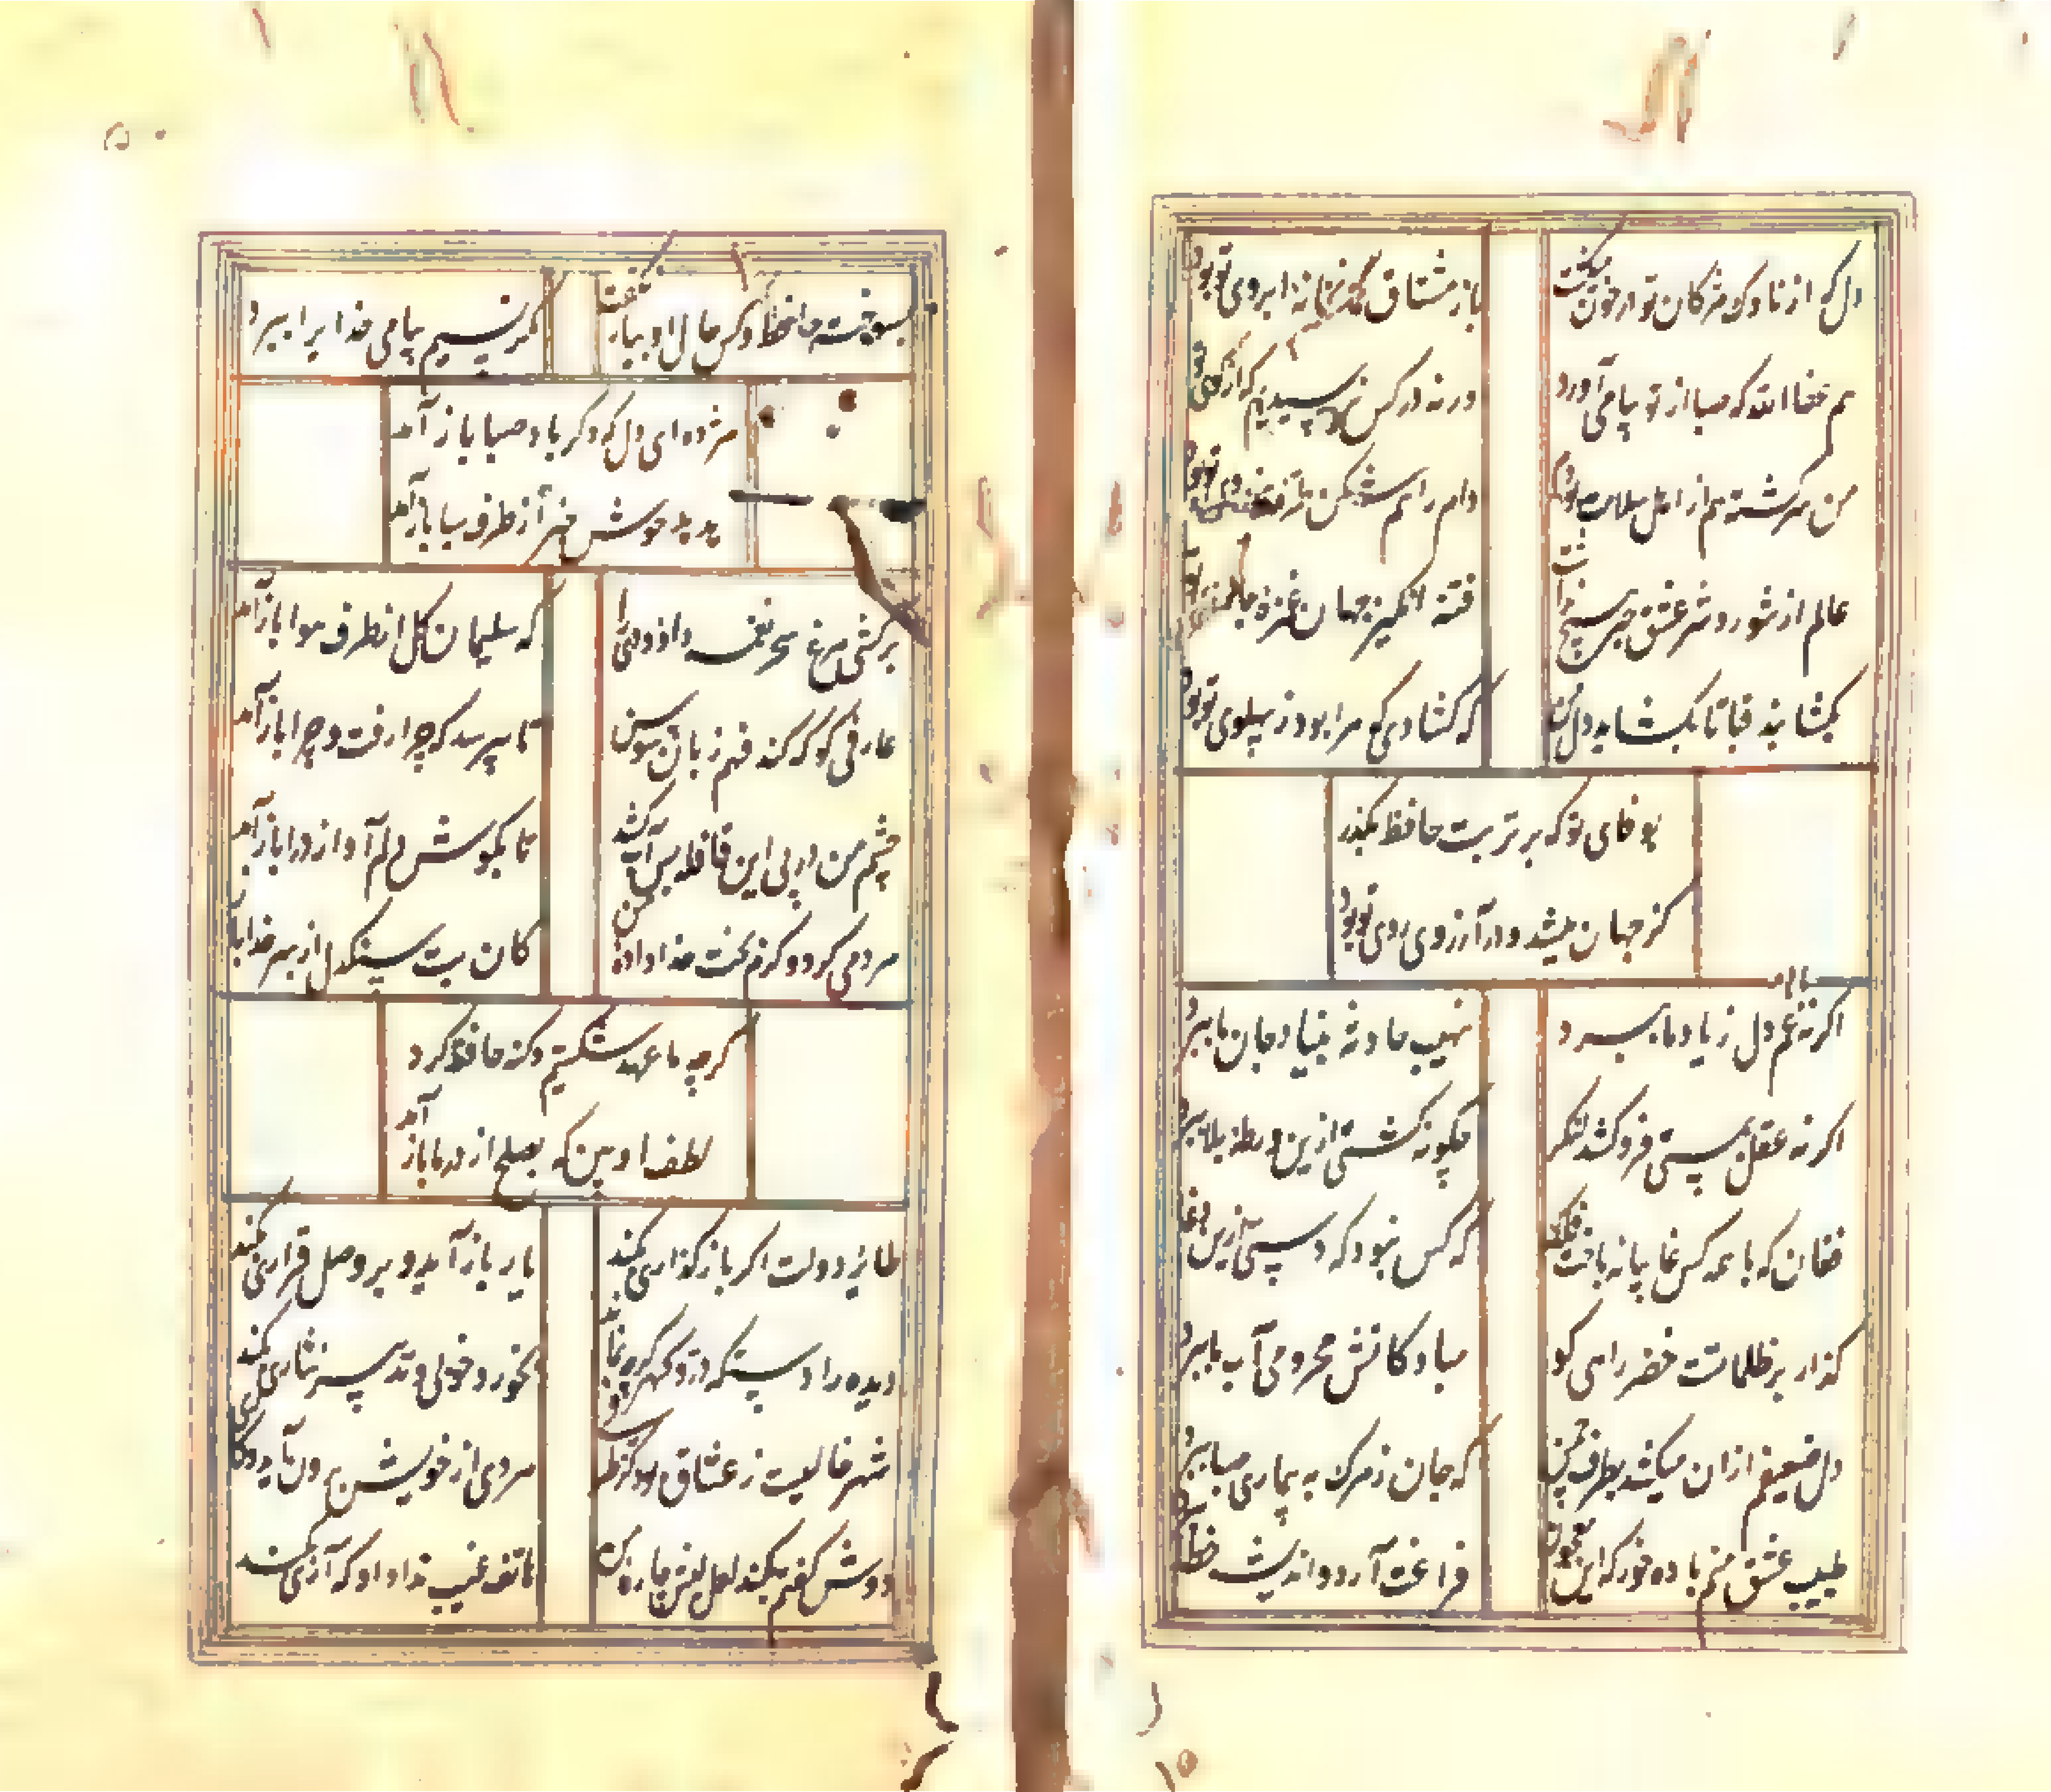 دل که از ناوک مژکان تو در خون میکشت
باز مشتاق کمانخانه ابروی تو بود
هم عفا الله که صبا از تو پیامی آورد
ورنه در کس نرسیدیم که از کوی تو
من سرکشته هم از اهل سلامت بودم
دام راهم شکن طره هندوی تو بود
عالم از شور و شر عشق خبر هیچ نداشت
فتنه انکیز جهان غمزه جادوی تو
بکشا بند قبا تا بکشاید دل من
که کشادی که مرا بود ز پهلوی تو بود
بوفای تو که بر تربت حافظ بکذر
کز جهان میشد و در آرزوی روی تو بود
اکر نه غم دل ز یاد ما ببرد
نهیب حادثه بنیاد جان ما ببرد
اکر نه عقل بمستی فرو کشد لنکر
چکونه کشتی ازین ورطه بلا ببرد
فغان که با همه کس غایبانه باخت فلک
که کس نبود که دستی ازین دغا
کذار بر ظلماتت خضر راهی کو
مباد کاتش محرومی آب ما ببرد
دل ضعیفم ازان میکشد بطرف چمن
که جان ز مرک به بیماری صبا ببرد
طبیب عشق منم باده خور که این معجون
فراغت آرد و اندیشه خطا
بسوخت حافظ و کس حال او بیار نکفت
مکر نسیم پیامی خدایرا ببرد
مژده ای دل که دکر باد صبا باز آمد
هدهد خوش خبر از طرف سبا باز آمد
برکش ای مرغ سحر نغمه داودی را
که سلیمان کل از طرف هوا باز آمد
عارفی کو که کند فهم زبان سوسن
تا بپرسد که چرا رفت و چرا باز آمد
چشم من در پی این قافله بس آب کشید
تا بکوش دلم آواز درا باز آمد
مردمی کرد و کرم بخت خداداد بمن
کان بت سنکدل از بهر خدا باز
کرچه ما عهد شکستیم و کنه حافظ کرد
لطف او بین که بصلح از در ما باز آمد
طایر دولت اکر باز کذاری بکند
یار باز آید و بر وصل قراری بکند
دیده را دستکه در و کهر کرچه نماند
بخورد خونی و تدبیر نثاری بکند
شهر خالیست ز عشاق بود کز طرفی
مردی از خویش برون آید و کاری
دوش کفتم بکند لعل لبش چاره من
هاتف غیب ندا داد که آری بکند